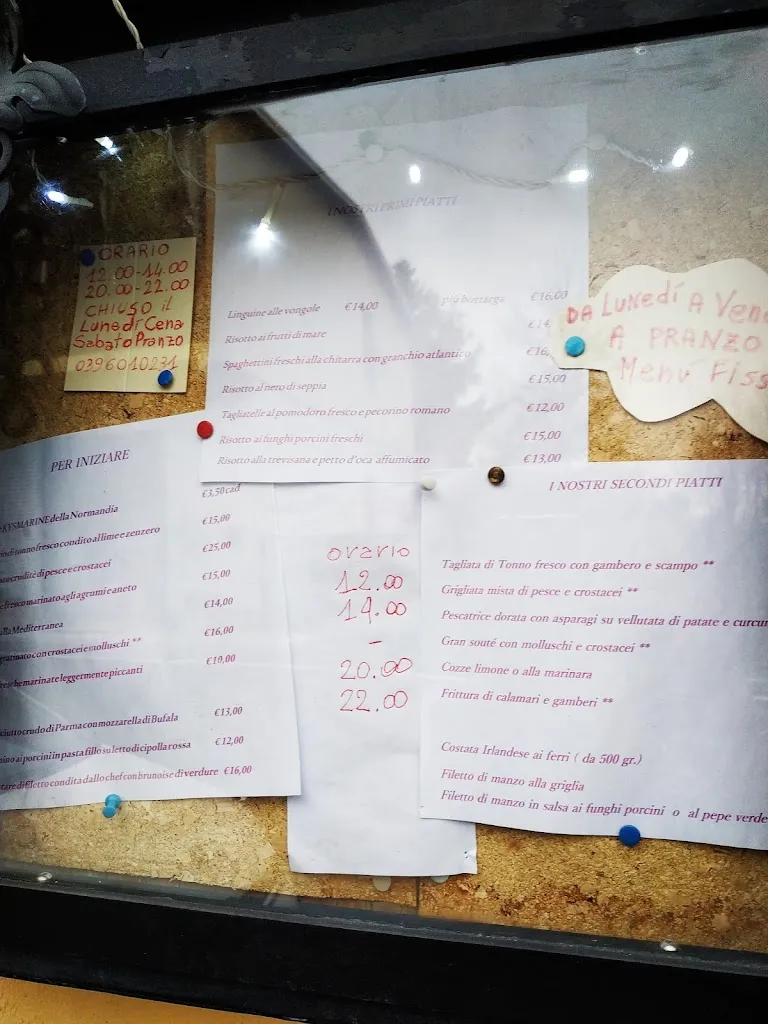 ORARIO
12.00-14.00
20.00-22.00
CHIUSO il
Lunedì Cena
Sabato Pranzo
0396010231
I NOSTRI PRIMI PIATTI
Linguine alle vongole €14,00 più bottarga €16,00
Risotto ai frutti di mare €14,
Spaghettini freschi alla chitarra con granchio atlantico €16,
Risotto al nero di seppia €15,00
Tagliatelle al pomodoro fresco e pecorino romano €12,00
Risotto ai funghi porcini freschi €15,00
Risotto alla trevisana e petto d'oca affumicato €13,00
DA LUNedí A Ven
A PRANZO
Menu Fiss
PER INIZIARE
KYSMARINE della Normandia €3,50 cad
tonno fresco condito al lime e zenzero €15,00
crudité di pesce e crostacei €25,00
fresco marinato agli agrumi e aneto €15,00
alla Mediterranea €14,00
gratinato con crostacei e molluschi ** €16,00
fresche marinate leggermente piccanti €10,00
crudo di Parma con mozzarella di Bufala €13,00
ai porcini in pasta fillo su letto di cipolla rossa €12,00
di filetto condita dallo chef con brunoise di verdure €16,00
orario
12.00
14.00
-
20.00
22.00
I NOSTRI SECONDI PIATTI
Tagliata di Tonno fresco con gambero e scampo **
Grigliata mista di pesce e crostacei **
Pescatrice dorata con asparagi su vellutata di patate e curcu
Gran souté con molluschi e crostacei **
Cozze limone o alla marinara
Frittura di calamari e gamberi **
Costata Irlandese ai ferri ( da 500 gr.)
Filetto di manzo alla griglia
Filetto di manzo in salsa ai funghi porcini o al pepe verde